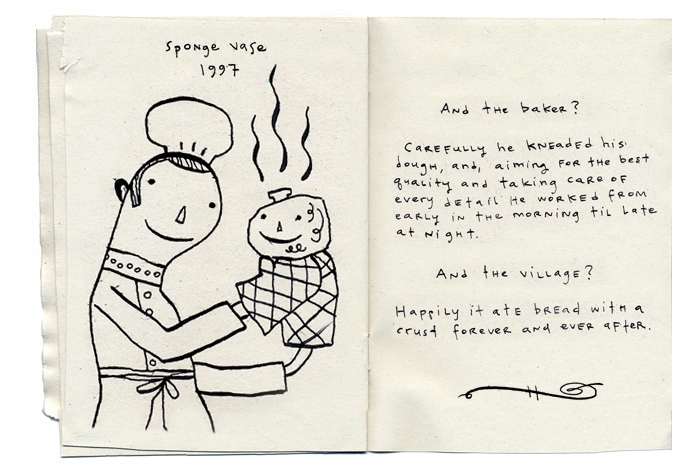 Sponge Vase
1997
And the baker?
Carefully he kneaded his
dough, and, aiming for the best
quality and taking care of
every detail he worked from
early in the morning til late
at night.
And the village?
Happily it ate bread with a
crust forever and ever after.